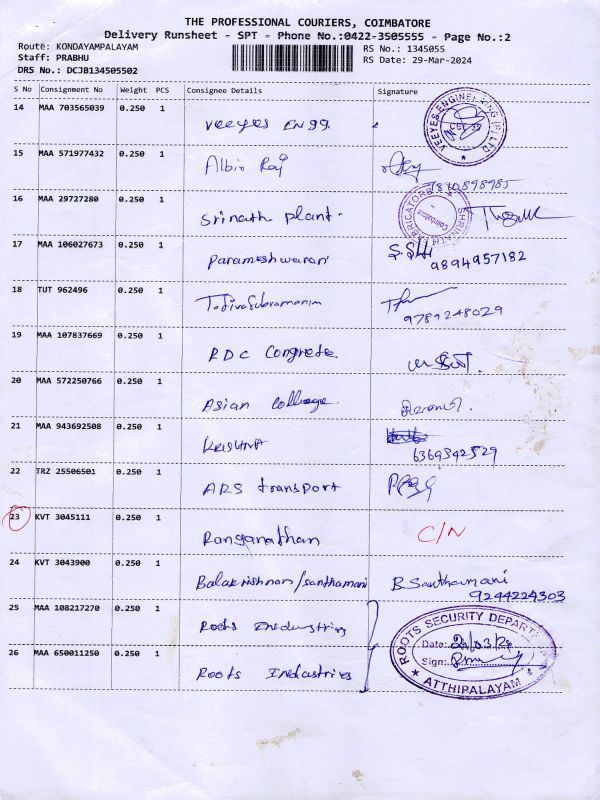 THE PROFESSIONAL COURIERS, COIMBATORE
Delivery Runsheet - SPT - Phone No.:0422-3505555 - Page No.:2
Route: KONDAYAMPALAYAM RS No.: 1345055
Staff: PRABHU RS Date: 29-Mar-2024
DRS No.: DCJB134505502
S No Consignment No Weight PCS Consignee Details Signature
14 MAA 703565039 0.250 1 Veeyes Engg. VEEYES ENGINEERING (P) LTD
15 MAA 571977432 0.250 1 Albin Raj
16 MAA 29727280 0.250 1 Srinath plant. SHRINATH FABRICATORS Coimbatore
17 MAA 106027673 0.250 1 Parameshwaran 9894957182
18 TUT 962496 0.250 1 T. Sivasubramanim 9789248029
19 MAA 107837669 0.250 1 RDC Congrete
20 MAA 572250766 0.250 1 Asian College
21 MAA 943692508 0.250 1 KRISHNA 6369342529
22 TRZ 25506501 0.250 1 ARS transport
23 KVT 3045111 0.250 1 Ranganathan C/N
24 KVT 3043900 0.250 1 Balakrishnan/santhamani B. Santhamani
9244224303
25 MAA 108217270 0.250 1 Roots Industries
26 MAA 650011250 0.250 1 Roots Industries
ROOTS SECURITY DEPART
Date: 29/03/24
Sign:
ATTHIPALAYAM